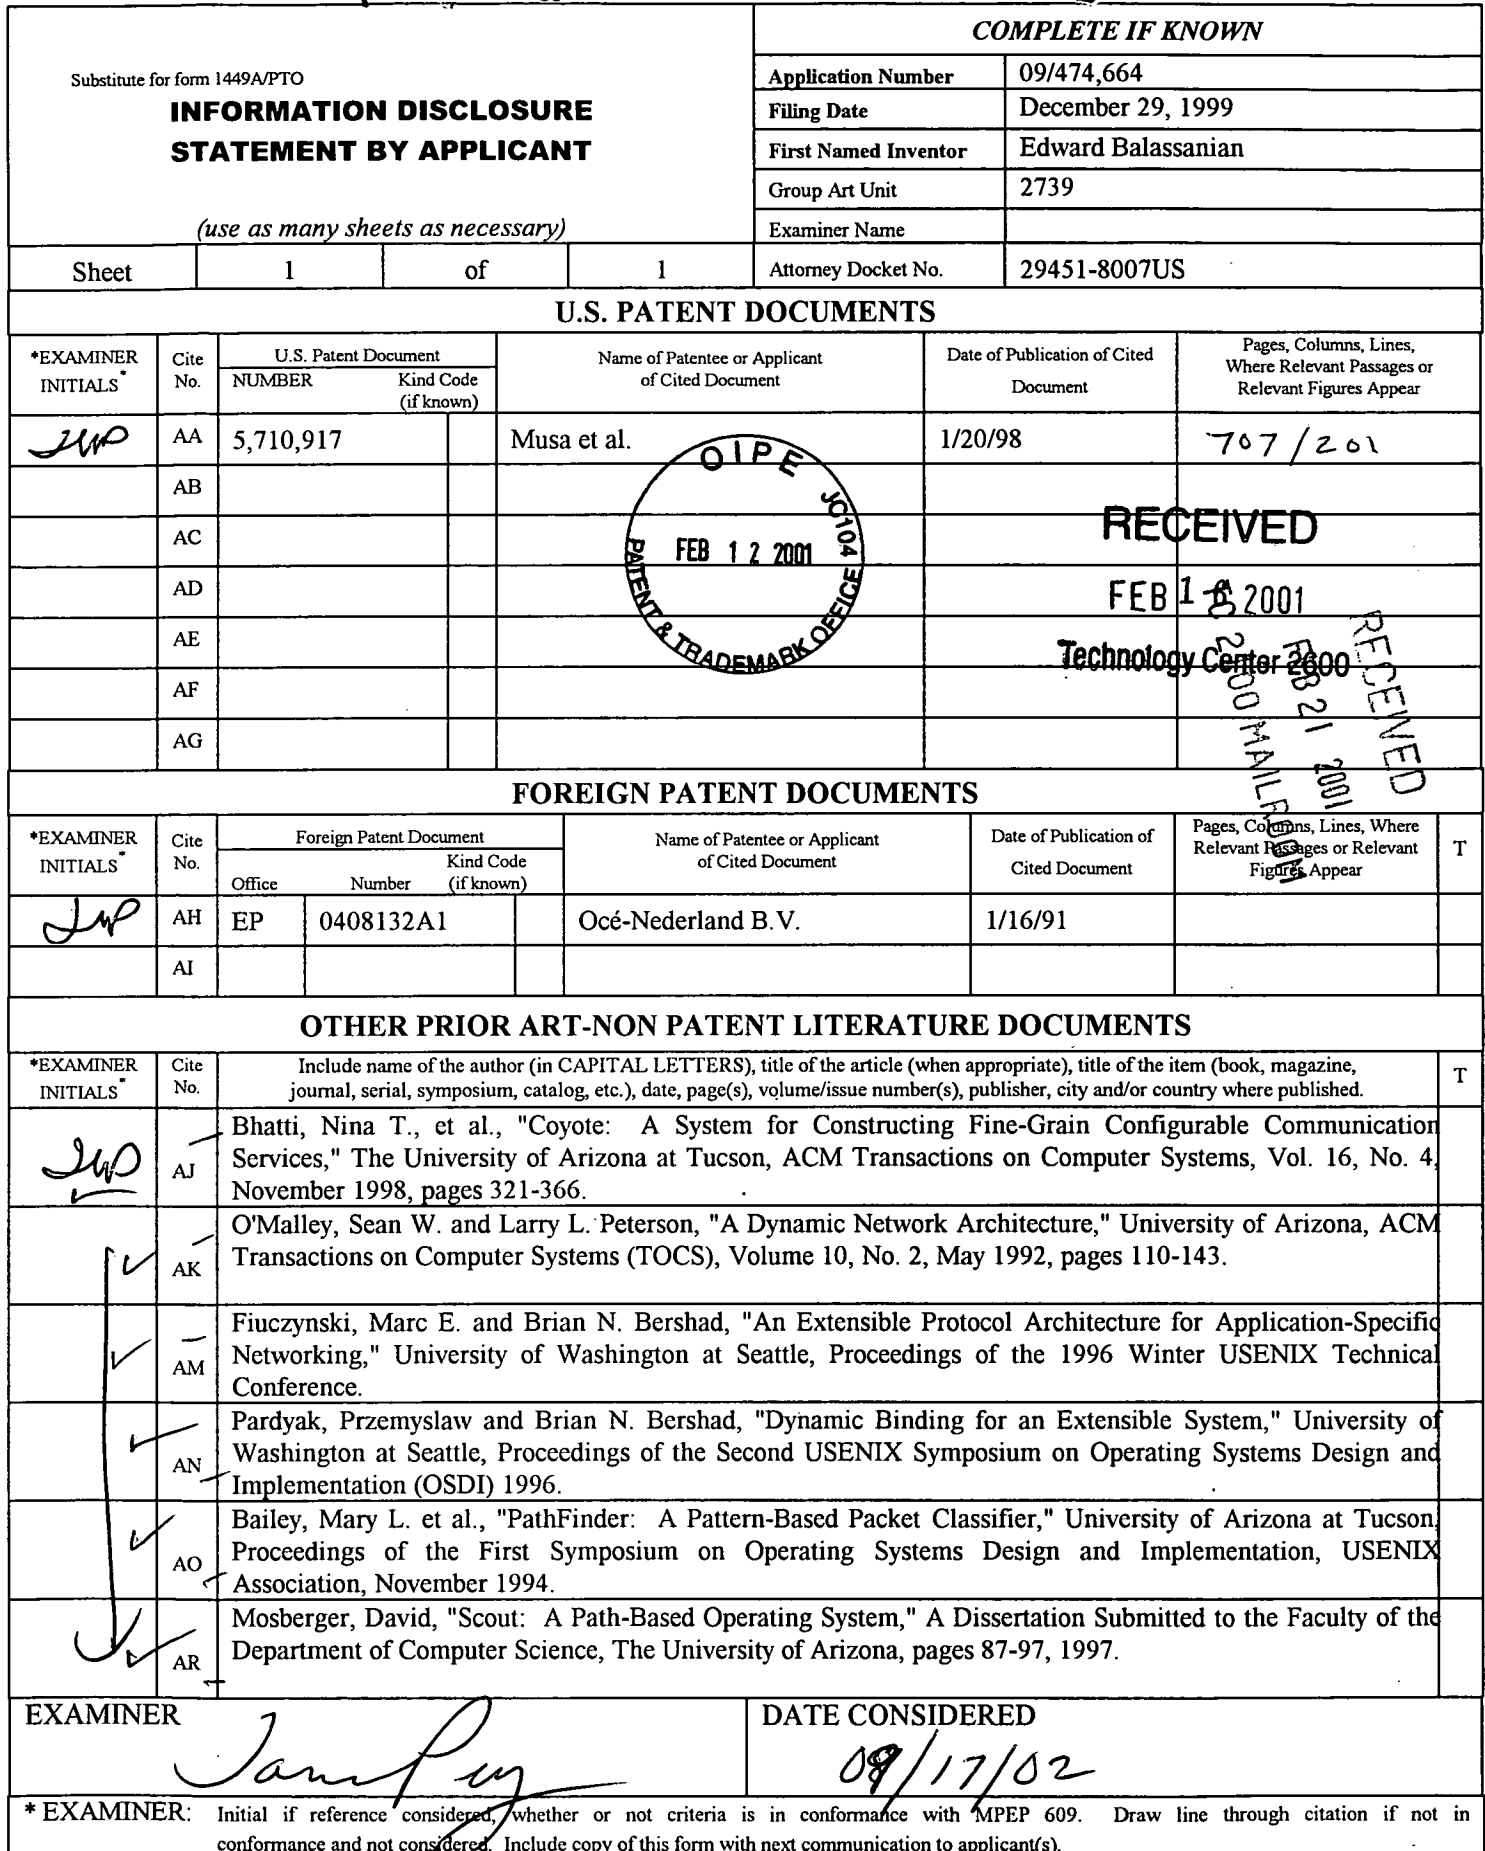 COMPLETE IF KNOWN
Substitute for form 1449A/PTO
INFORMATION DISCLOSURE
STATEMENT BY APPLICANT
(use as many sheets as necessary)
Application Number 09/474,664
Filing Date December 29, 1999
First Named Inventor Edward Balassanian
Group Art Unit 2739
Examiner Name
Sheet 1 of 1 Attorney Docket No. 29451-8007US
U.S. PATENT DOCUMENTS
*EXAMINER INITIALS*
Cite No.
U.S. Patent Document
NUMBER
Kind Code (if known)
Name of Patentee or Applicant of Cited Document
Date of Publication of Cited Document
Pages, Columns, Lines, Where Relevant Passages or Relevant Figures Appear
AA 5,710,917 Musa et al. 1/20/98 707/201
AB
AC
AD
AE
AF
AG
OIPE JC104
FEB 12 2001
PATENT & TRADEMARK OFFICE
RECEIVED
FEB 1 2001
Technology Center 2600
RECEIVED
FEB 21 2001
2100 MAILROOM
FOREIGN PATENT DOCUMENTS
*EXAMINER INITIALS*
Cite No.
Foreign Patent Document
Office
Number
Kind Code (if known)
Name of Patentee or Applicant of Cited Document
Date of Publication of Cited Document
Pages, Columns, Lines, Where Relevant Passages or Relevant Figures Appear
T
AH EP 0408132A1 Océ-Nederland B.V. 1/16/91
AI
OTHER PRIOR ART-NON PATENT LITERATURE DOCUMENTS
*EXAMINER INITIALS*
Cite No.
Include name of the author (in CAPITAL LETTERS), title of the article (when appropriate), title of the item (book, magazine,
journal, serial, symposium, catalog, etc.), date, page(s), volume/issue number(s), publisher, city and/or country where published.
T
AJ
Bhatti, Nina T., et al., "Coyote: A System for Constructing Fine-Grain Configurable Communication
Services," The University of Arizona at Tucson, ACM Transactions on Computer Systems, Vol. 16, No. 4,
November 1998, pages 321-366.
AK
O'Malley, Sean W. and Larry L. Peterson, "A Dynamic Network Architecture," University of Arizona, ACM
Transactions on Computer Systems (TOCS), Volume 10, No. 2, May 1992, pages 110-143.
AM
Fiuczynski, Marc E. and Brian N. Bershad, "An Extensible Protocol Architecture for Application-Specific
Networking," University of Washington at Seattle, Proceedings of the 1996 Winter USENIX Technical
Conference.
AN
Pardyak, Przemyslaw and Brian N. Bershad, "Dynamic Binding for an Extensible System," University of
Washington at Seattle, Proceedings of the Second USENIX Symposium on Operating Systems Design and
Implementation (OSDI) 1996.
AO
Bailey, Mary L. et al., "PathFinder: A Pattern-Based Packet Classifier," University of Arizona at Tucson,
Proceedings of the First Symposium on Operating Systems Design and Implementation, USENIX
Association, November 1994.
AR
Mosberger, David, "Scout: A Path-Based Operating System," A Dissertation Submitted to the Faculty of the
Department of Computer Science, The University of Arizona, pages 87-97, 1997.
EXAMINER
DATE CONSIDERED
08/17/02
* EXAMINER: Initial if reference considered, whether or not criteria is in conformance with MPEP 609. Draw line through citation if not in
conformance and not considered. Include copy of this form with next communication to applicant(s).